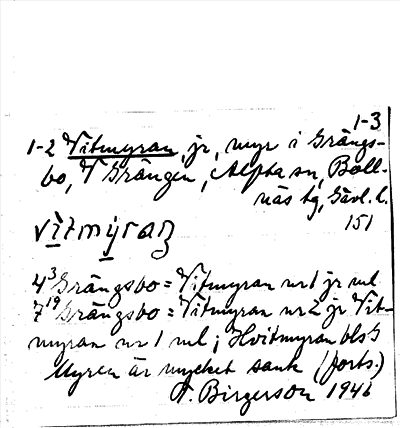 1-3
1-2 Vitmyran, jr, myr i Grängs-
bo, V Grängen, Alfta sn, Boll-
näs tg, Gävl. l.
151
vi̲tmy̲raŋ
4³ Grängsbo = Vitmyran nr 1 jr ml
7¹⁹ Grängsbo = Vitmyran nr 2 jr Vit-
myran nr 1 ml; Hvitmyran bls G
Myren är mycket sank (forts.)
F. Birgerson 1946